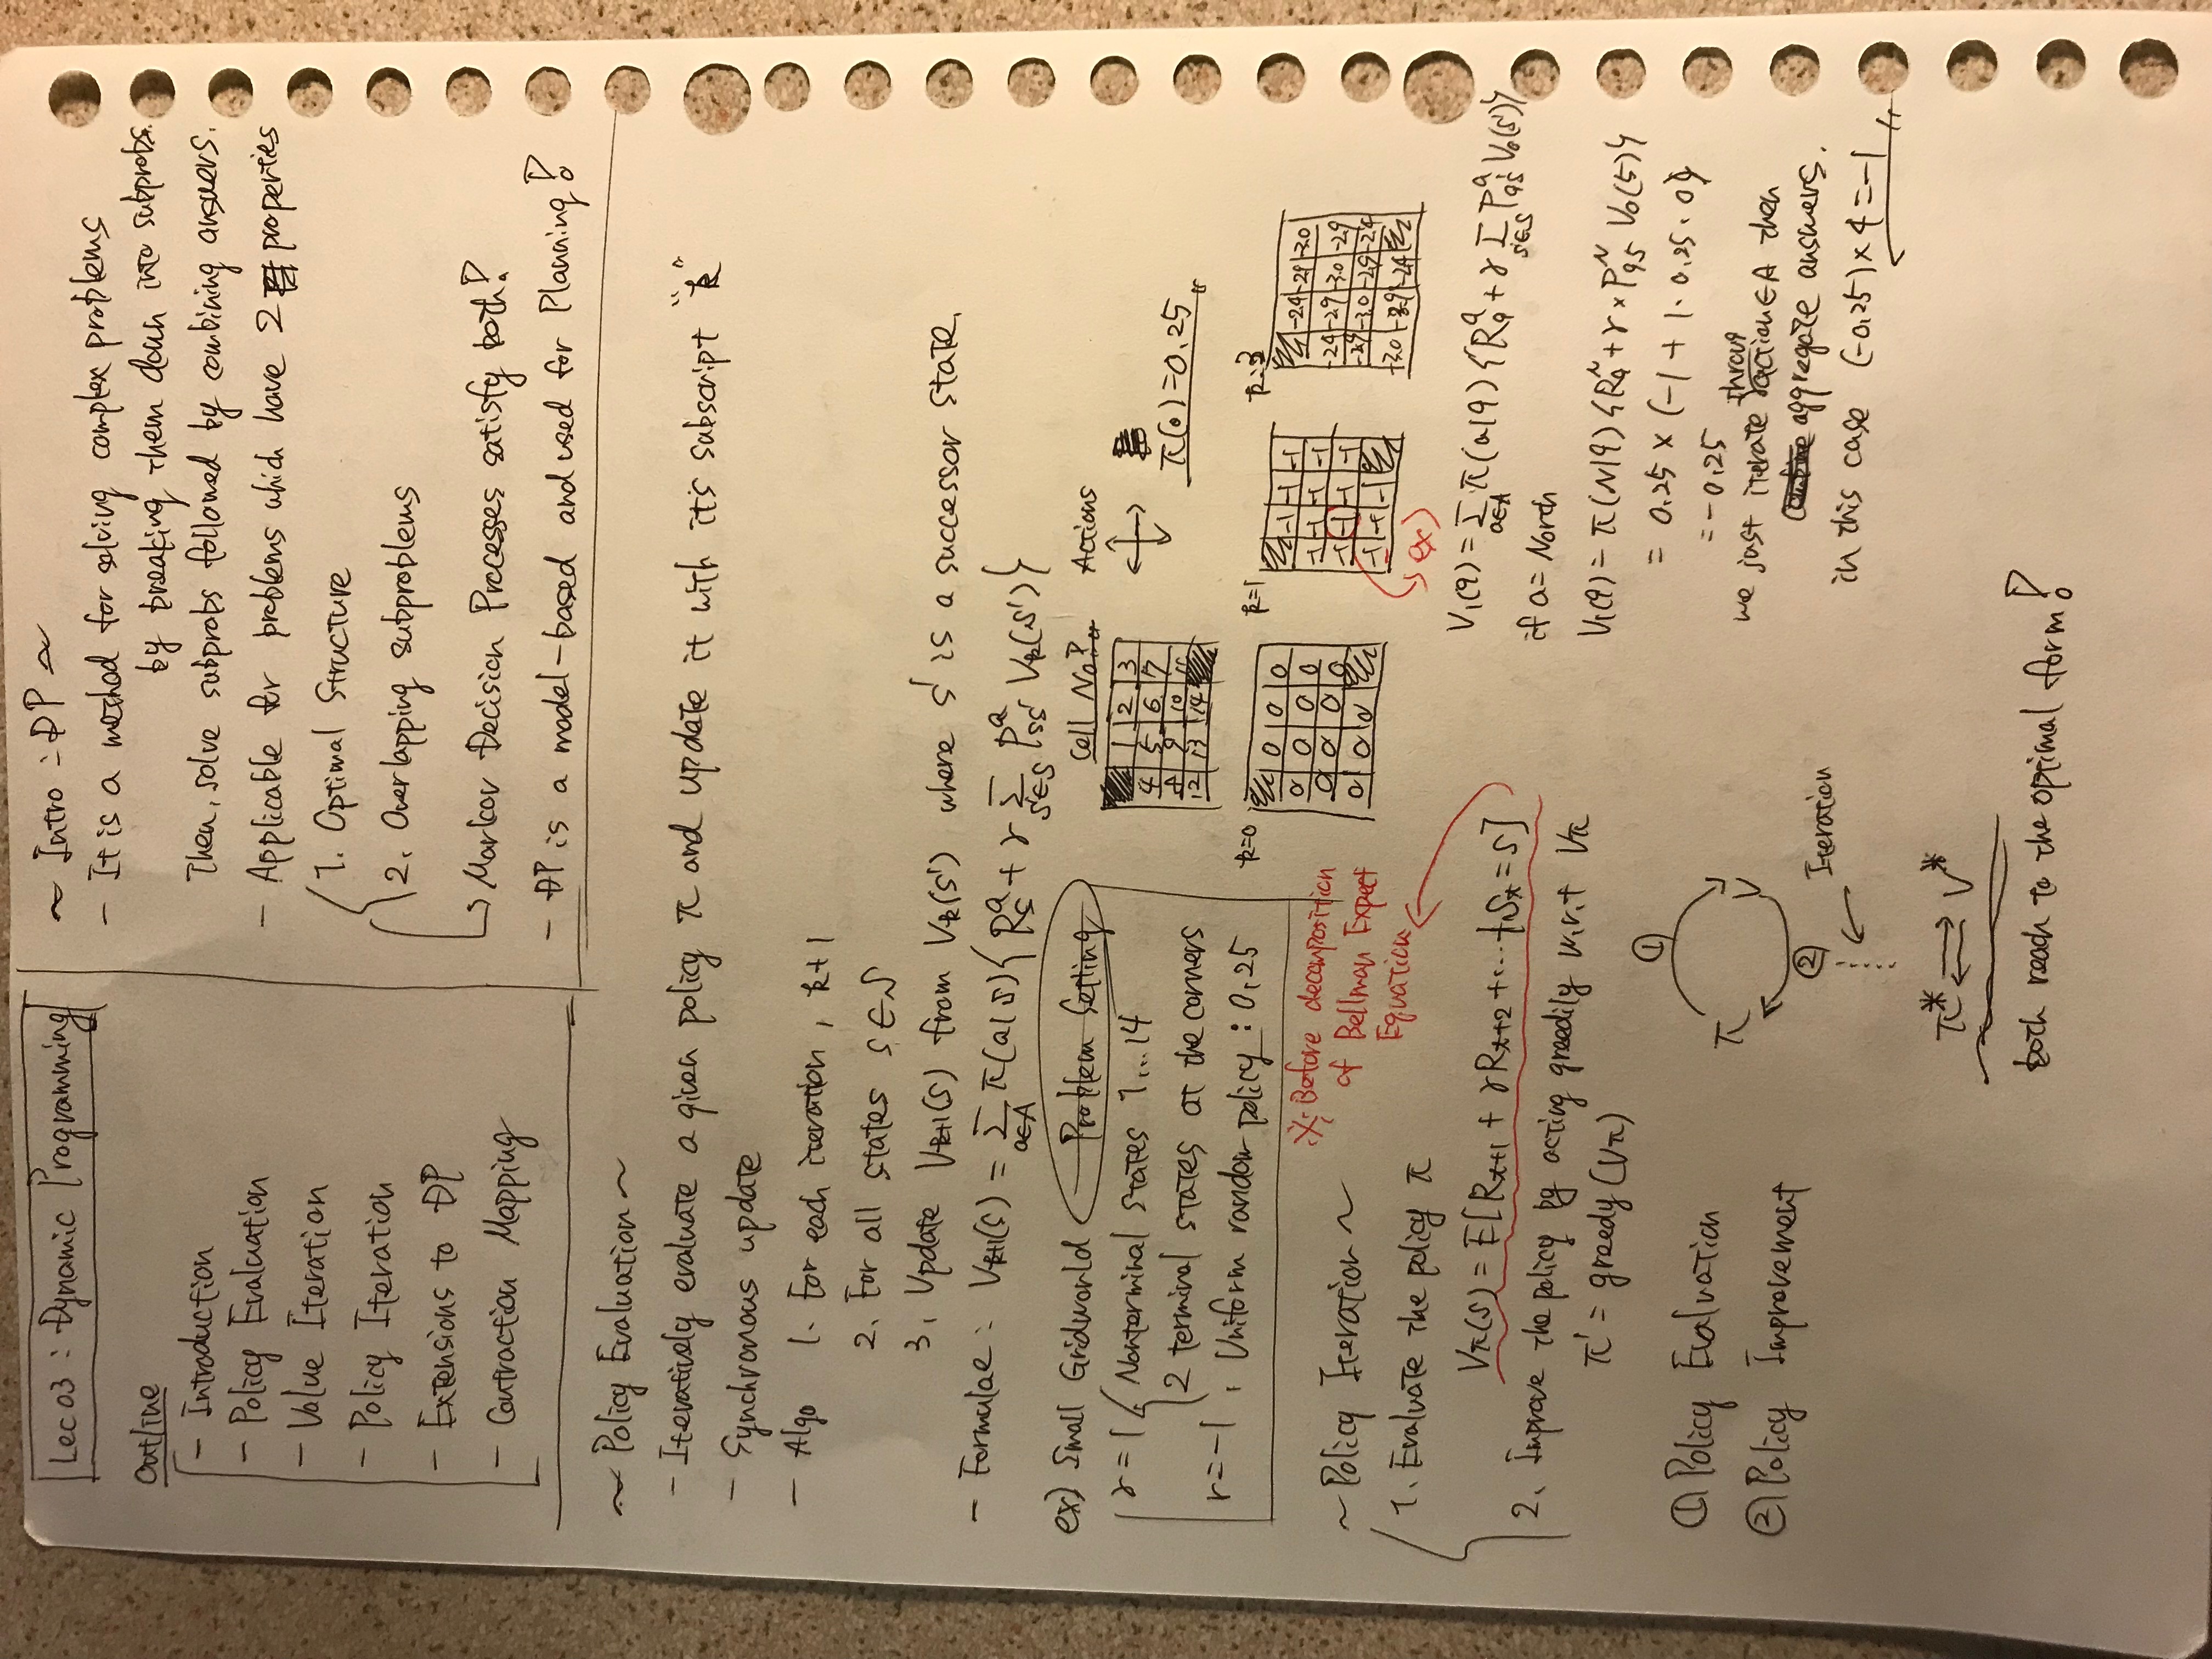 Lec 03 : Dynamic Programming
Outline
- Introduction
- Policy Evaluation
- Value Iteration
- Policy Iteration
- Extensions to DP
- Contraction Mapping
~ Intro : DP ~
- It is a method for solving complex problems
by breaking them down into subprobs.
Then, solve subprobs followed by combining answers.
- Applicable for problems which have 2 properties
1. Optimal Structure
2. Overlapping subproblems
↳ Markov Decision Processes satisfy both!
- DP is a model-based and used for Planning!
~ Policy Evaluation ~
- Iteratively evaluate a given policy π and update it with it's subscript "k"
- Synchronous update
- Algo 1. For each iteration, k+1
2. For all states s ∈ S
3, Update Vk+1(s) from Vk(s') where s' is a successor state.
- Formulae : Vk+1(s) = Σa∈A π(a|s){ R^a_s + γ Σs'∈S P^a_ss' Vk(s')}
ex) Small Gridworld Problem Setting
γ = 1 { Nonterminal states 1...14
2 terminal states at the corners
r = -1 , Uniform random policy : 0.25
Cell No. Actions
1 2 3
4 5 6 7
8 9 10 11
12 13 14
π(•) = 0.25
k=0
0 0 0
0 0 0 0
0 0 0 0
0 0 0
k=1
-1 -1 -1
-1 -1 -1 -1
-1 -1 -1 -1
-1 -1 -1
k=3
-2.4 -2.9 -3.0
-2.4 -2.9 -3.0 -2.9
-2.9 -3.0 -2.9 -2.4
-3.0 -2.9 -2.4
ex)
V1(9) = Σa∈A π(a|9) {R^a_9 + γ Σs'∈S P^a_9s' V0(s')}
if a = North
V1(9) = π(N|9) {R^N_9 + γ × P^N_95 V0(5)}
= 0.25 × (-1 + 1 · 0.25 · 0)
= -0.25
we just iterate throug action ∈ A then
aggregate answers.
in this case (-0.25) × 4 = -1
※ Before decomposition
of Bellman Expect
Equation
~ Policy Iteration ~
1. Evaluate the policy π
Vπ(s) = E[Rt+1 + γRt+2 + ... | St = s]
2. Improve the policy by acting greedily w.r.t Vπ
π' = greedy (Vπ)
① Policy Evaluation
② Policy Improvement
①
π V
②
Iteration
π* ⇄ V*
both reach to the optimal form!